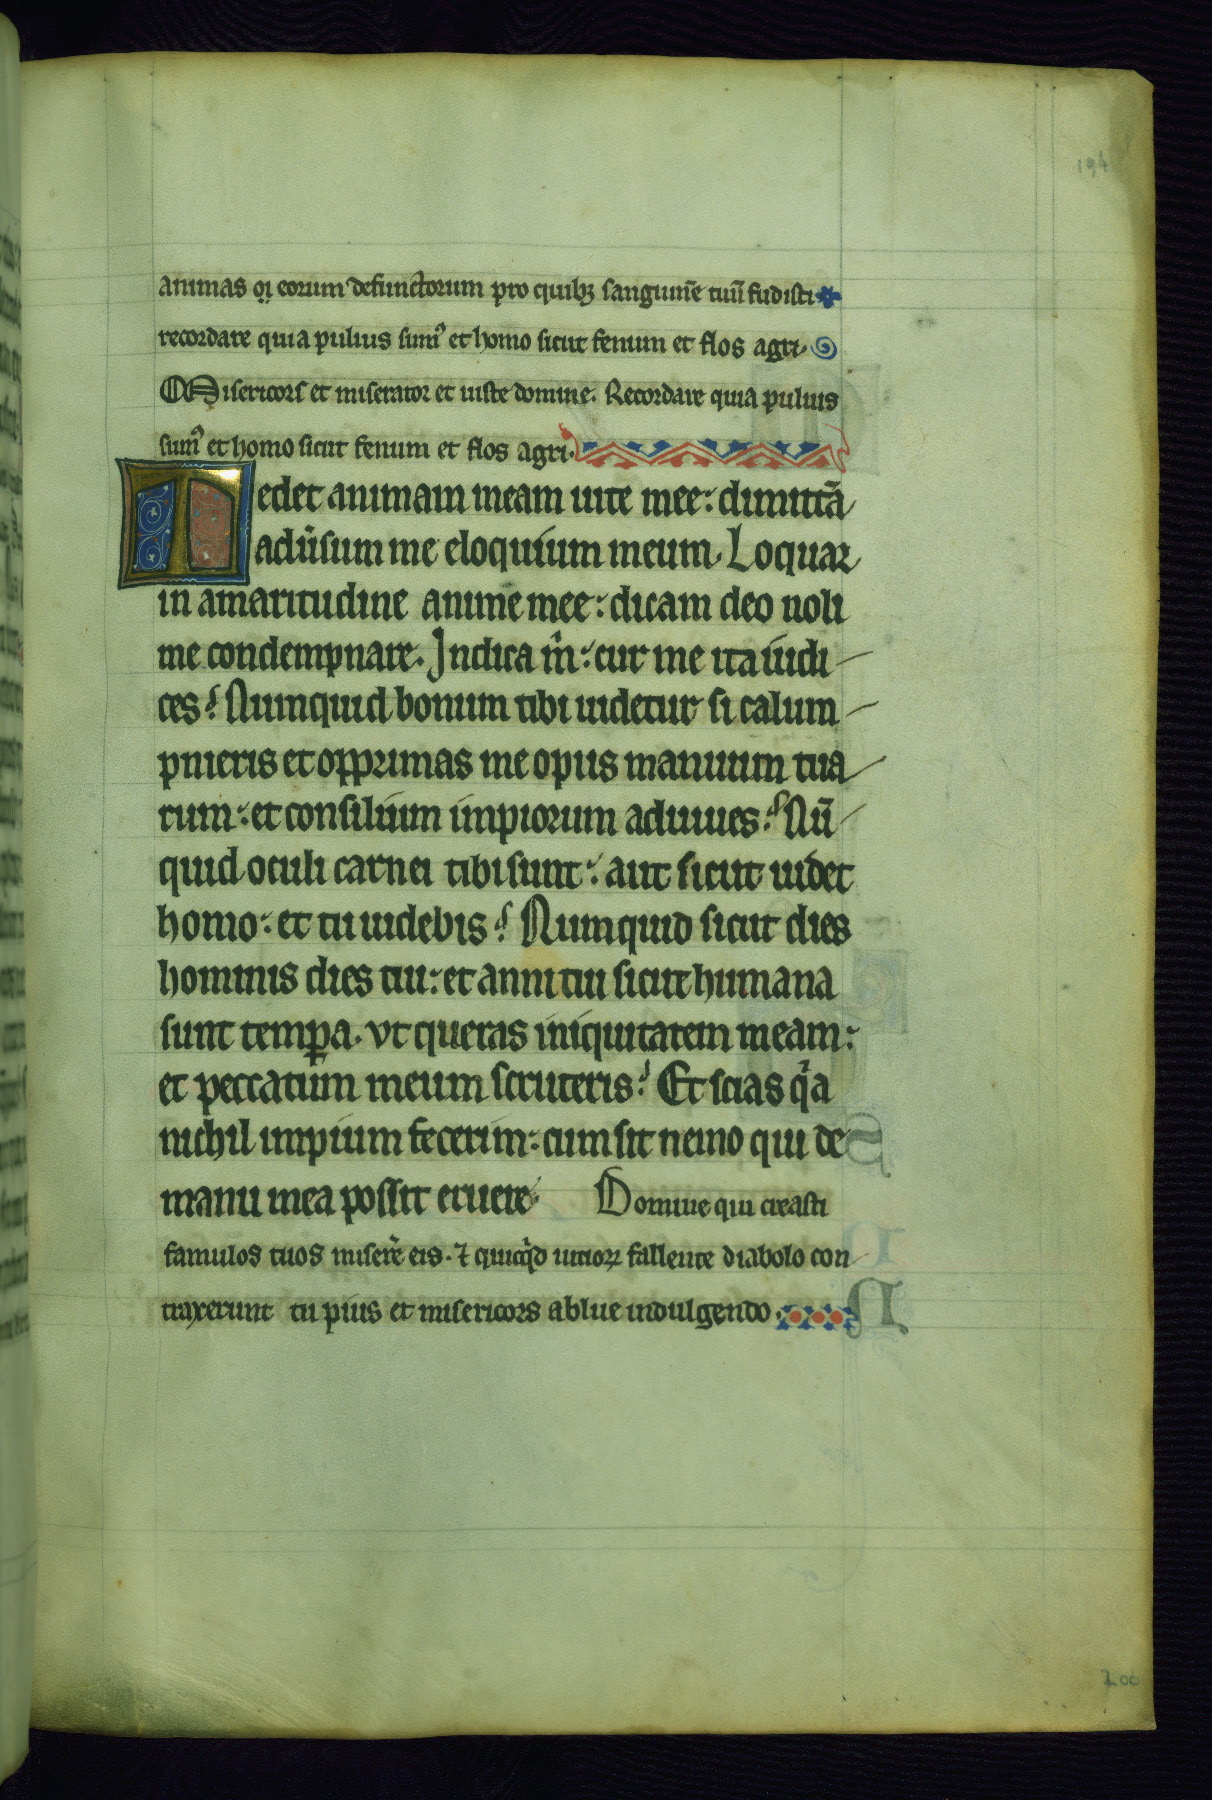 194
animas oı eorum defunctorum pro quibꝫ sanguinē tuū fudisti
recordare quia puluis sumꝰ et homo sicut fenum et flos agri.
Misericors et miserator et iuste domine. Recordare quia puluis
sumꝰ et homo sicut fenum et flos agri.
Tedet animam meam uite mee: dimittā
aduersum me eloquium meum. Loquar
in amaritudine anime mee: dicam deo noli
me condempnare. Indica m̄: cur me ita iudi
ces? Numquid bonum tibi uidetur si calum
pnieris et opprimas me opus manuum tua
rum: et consilium impiorum adiuues? Nū
quid oculi carnei tibi sunt: aut sicut uidet
homo: et tu uidebis? Numquid sicut dies
hominis dies tui: et anni tui sicut humana
sunt temꝑa. vt queras iniquitatem meam:
et peccatum meum scruteris? Et scias qͥa
nichil impium fecerim: cum sit nemo qui de
manu mea possit eruere. Domine qui creasti
famulos tuos miserē eis. ⁊ quicqͥd uitioꝝ fallente diabolo con
traxerunt tu pius et misericors ablue indulgendo.
200